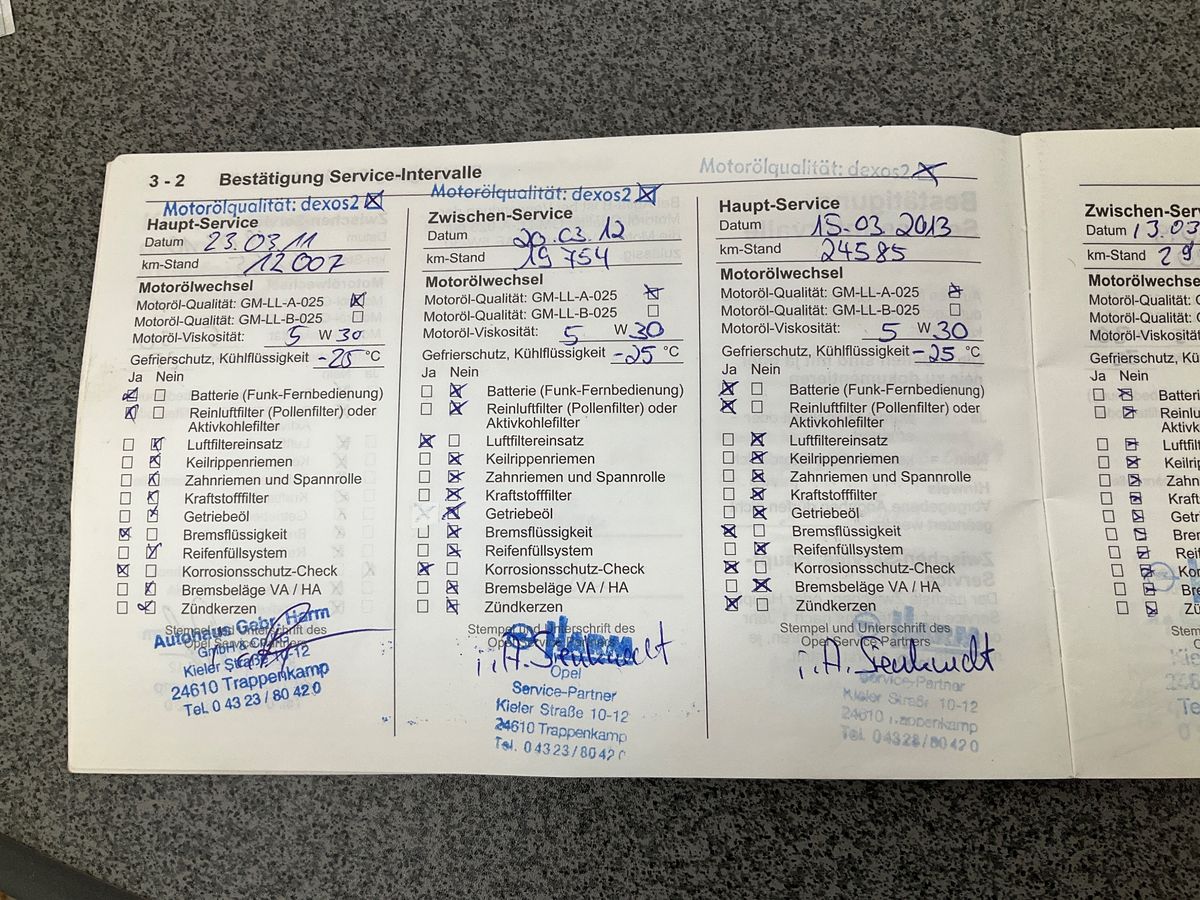 3 - 2 Bestätigung Service-Intervalle
Motorölqualität: dexos2 ☒
Haupt-Service
Datum 23.03.11
km-Stand 12007
Motorölwechsel
Motoröl-Qualität: GM-LL-A-025 ☒
Motoröl-Qualität: GM-LL-B-025 ☐
Motoröl-Viskosität: 5 W 30
Gefrierschutz, Kühlflüssigkeit -25 °C
Ja Nein
☒ ☐ Batterie (Funk-Fernbedienung)
☒ ☐ Reinluftfilter (Pollenfilter) oder
Aktivkohlefilter
☐ ☒ Luftfiltereinsatz
☐ ☒ Keilrippenriemen
☐ ☒ Zahnriemen und Spannrolle
☐ ☒ Kraftstofffilter
☐ ☒ Getriebeöl
☒ ☐ Bremsflüssigkeit
☐ ☒ Reifenfüllsystem
☒ ☐ Korrosionsschutz-Check
☐ ☒ Bremsbeläge VA / HA
☐ ☒ Zündkerzen
Stempel und Unterschrift des
Opel Service Partners
Autohaus Gebr. Harm
GmbH & Co. KG
Kieler Straße 10-12
24610 Trappenkamp
Tel. 0 43 23 / 80 42 0
Motorölqualität: dexos2 ☒
Zwischen-Service
Datum 20.03.12
km-Stand 19754
Motorölwechsel
Motoröl-Qualität: GM-LL-A-025 ☒
Motoröl-Qualität: GM-LL-B-025 ☐
Motoröl-Viskosität: 5 W 30
Gefrierschutz, Kühlflüssigkeit -25 °C
Ja Nein
☐ ☒ Batterie (Funk-Fernbedienung)
☐ ☒ Reinluftfilter (Pollenfilter) oder
Aktivkohlefilter
☒ ☐ Luftfiltereinsatz
☐ ☒ Keilrippenriemen
☐ ☒ Zahnriemen und Spannrolle
☐ ☒ Kraftstofffilter
☐ ☒ Getriebeöl
☐ ☒ Bremsflüssigkeit
☐ ☒ Reifenfüllsystem
☒ ☐ Korrosionsschutz-Check
☐ ☒ Bremsbeläge VA / HA
☐ ☒ Zündkerzen
Stempel und Unterschrift des
Opel Service Partners
HARM
i. A.
Opel
Service-Partner
Kieler Straße 10-12
24610 Trappenkamp
Tel. 04323/80420
Motorölqualität: dexos2 ☒
Haupt-Service
Datum 15.03.2013
km-Stand 24585
Motorölwechsel
Motoröl-Qualität: GM-LL-A-025 ☒
Motoröl-Qualität: GM-LL-B-025 ☐
Motoröl-Viskosität: 5 W 30
Gefrierschutz, Kühlflüssigkeit -25 °C
Ja Nein
☒ ☐ Batterie (Funk-Fernbedienung)
☒ ☐ Reinluftfilter (Pollenfilter) oder
Aktivkohlefilter
☐ ☒ Luftfiltereinsatz
☐ ☒ Keilrippenriemen
☐ ☒ Zahnriemen und Spannrolle
☐ ☒ Kraftstofffilter
☐ ☒ Getriebeöl
☒ ☐ Bremsflüssigkeit
☐ ☒ Reifenfüllsystem
☒ ☐ Korrosionsschutz-Check
☐ ☒ Bremsbeläge VA / HA
☒ ☐ Zündkerzen
Stempel und Unterschrift des
Opel Service Partners
HARM
i. A.
Service-Partner
Kieler Straße 10-12
24610 Trappenkamp
Tel. 04323/80420
Zwischen-Serv
Datum 13.03
km-Stand 29
Motorölwechse
Motoröl-Qualität: G
Motoröl-Qualität: G
Motoröl-Viskosität
Gefrierschutz, Kü
Ja Nein
☐ ☒ Batter
☐ ☒ Reinlu
Aktivk
☐ ☒ Luftfil
☐ ☒ Keilrip
☐ ☒ Zahn
☐ ☒ Kraft
☐ ☒ Getri
☐ ☒ Brem
☐ ☒ Reif
☐ ☒ Kor
☐ ☒ Bre
☐ ☒ Zü
Stemp
Op
Te